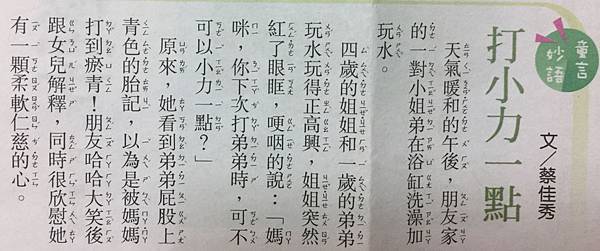 童言
妙語
打小力一點
文／蔡佳秀
天氣暖和的午後，朋友家
的一對小姐弟在浴缸洗澡加
玩水。
四歲的姐姐和一歲的弟弟
玩水玩得正高興，姐姐突然
紅了眼眶，哽咽的說：「媽
咪，你下次打弟弟時，可不
可以小力一點？」
原來，她看到弟弟屁股上
青色的胎記，以為是被媽媽
打到瘀青！朋友哈哈大笑後
跟女兒解釋，同時很欣慰她
有一顆柔軟仁慈的心。